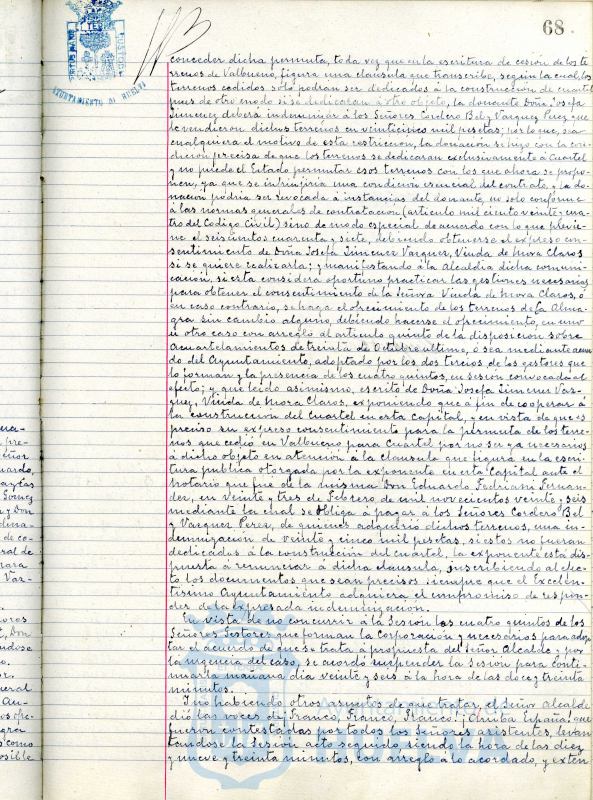 68
AYUNTAMIENTO DE HUELVA
conceder dicha permuta, toda vez que en la escritura de cesión de los te
rrenos de Valbueno, figura una clausula que transcribe, según la cual, los
terrenos cedidos solo podran ser dedicados á la construcción de cuartel
pues de otro modo si se dedicaran á otro objeto, la donante Doña Josefa
Jimenez deberá indemnizar á los Señores Cordero Bel y Vazquez Perez que
le vendieron dichos terrenos en veinticinco mil pesetas; por lo que, sea
cualquiera el motivo de esta restricción, la donación se hizo con la con-
dición precisa de que los terrenos se dedicaran exclusivamente á Cuartel
y no puede el Estado permutar esos terrenos con los que ahora se propo-
nen, ya que se infrinjiria una condición esencial del contrato, y la do-
nación podria ser revocada á instancias del donante, no solo conforme
á las normas generales de contratación (articulo mil ciento veinte y cua-
tro del Codigo Civil) sino de modo especial de acuerdo con lo que previe-
ne el seiscientos cuarenta y siete, debiendo obtenerse el expreso con-
sentimiento de Doña Josefa Jimenez Vazquez, Viuda de Mora Claros
si se quiere realizarla; y manifestando á la Alcaldia dicha comuni-
cación, si esta considera oportuno practicar las gestiones necesarias
para obtener el consentimiento de la Señora Viuda de Mora Claros, ó
en caso contrario, se haga el ofrecimiento de los terrenos de la Alma
gra sin cambio alguno, debiendo hacerse el ofrecimiento, en uno
u otro caso con arreglo al articulo quinto de la disposición sobre
Acuartelamientos de treinta de Octubre ultimo, ó sea mediante acuer
do del Ayuntamiento, adoptado por los dos tercios de los gestores que
lo forman y la presencia de los cuatro quintos, en sesión convocada al
efecto; y que leido asimismo, escrito de Doña Josefa Jimenez Vaz-
quez, Viuda de Mora Claros, exponiendo que á fin de cooperar á
la construcción del Cuartel en esta Capital, y en vista de que es
preciso su expreso consentimiento para la permuta de los terre-
nos que cedió en Valbueno para Cuartel por no ser ya necesarios
á dicho objeto en atención á la clausula que figura en la escri-
tura publica otorgada por la exponente en esta Capital ante el
Notario que fué de la misma Don Eduardo Fedriani Fernan-
dez, en veinte y tres de Febrero de mil novecientos veinte y seis
mediante la cual se obliga á pagar á los Señores Cordero Bel
y Vazquez Perez, de quienes adquirió dichos terrenos, una in-
demnización de veinte y cinco mil pesetas, si estos no fueran
dedicados á la construcción del cuartel, la exponente está dis-
puesta á renunciar á dicha clausula, suscribiendo al efec-
to los documentos que sean precisos siempre que el Excelen-
tisimo Ayuntamiento adquiera el compromiso de respon-
der de la expresada indemnización.
En vista de no concurrir á la Sesión los cuatro quintos de los
Señores Gestores que forman la Corporación y necesarios para adop
tar el acuerdo de que se trata á propuesta del Señor Alcalde y por
la urgencia del caso, se acordó suspender la Sesión para conti-
nuarla mañana dia veinte y seis á la hora de las doce y treinta
minutos.
Y no habiendo otros asuntos de que tratar, el Señor Alcalde
dió las voces de ¡Franco, Franco, Franco! ¡Arriba España! que
fueron contestadas por todos los Señores asistentes, levan
tandose la Sesión acto seguido, siendo la hora de las diez
y nueve y treinta minutos, con arreglo á lo acordado, y exten